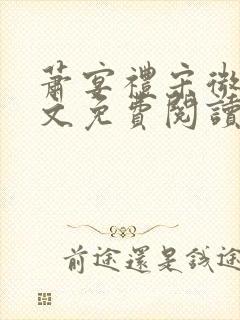 蕭宴禮宋微
文免費閱讀
前途還是錢途